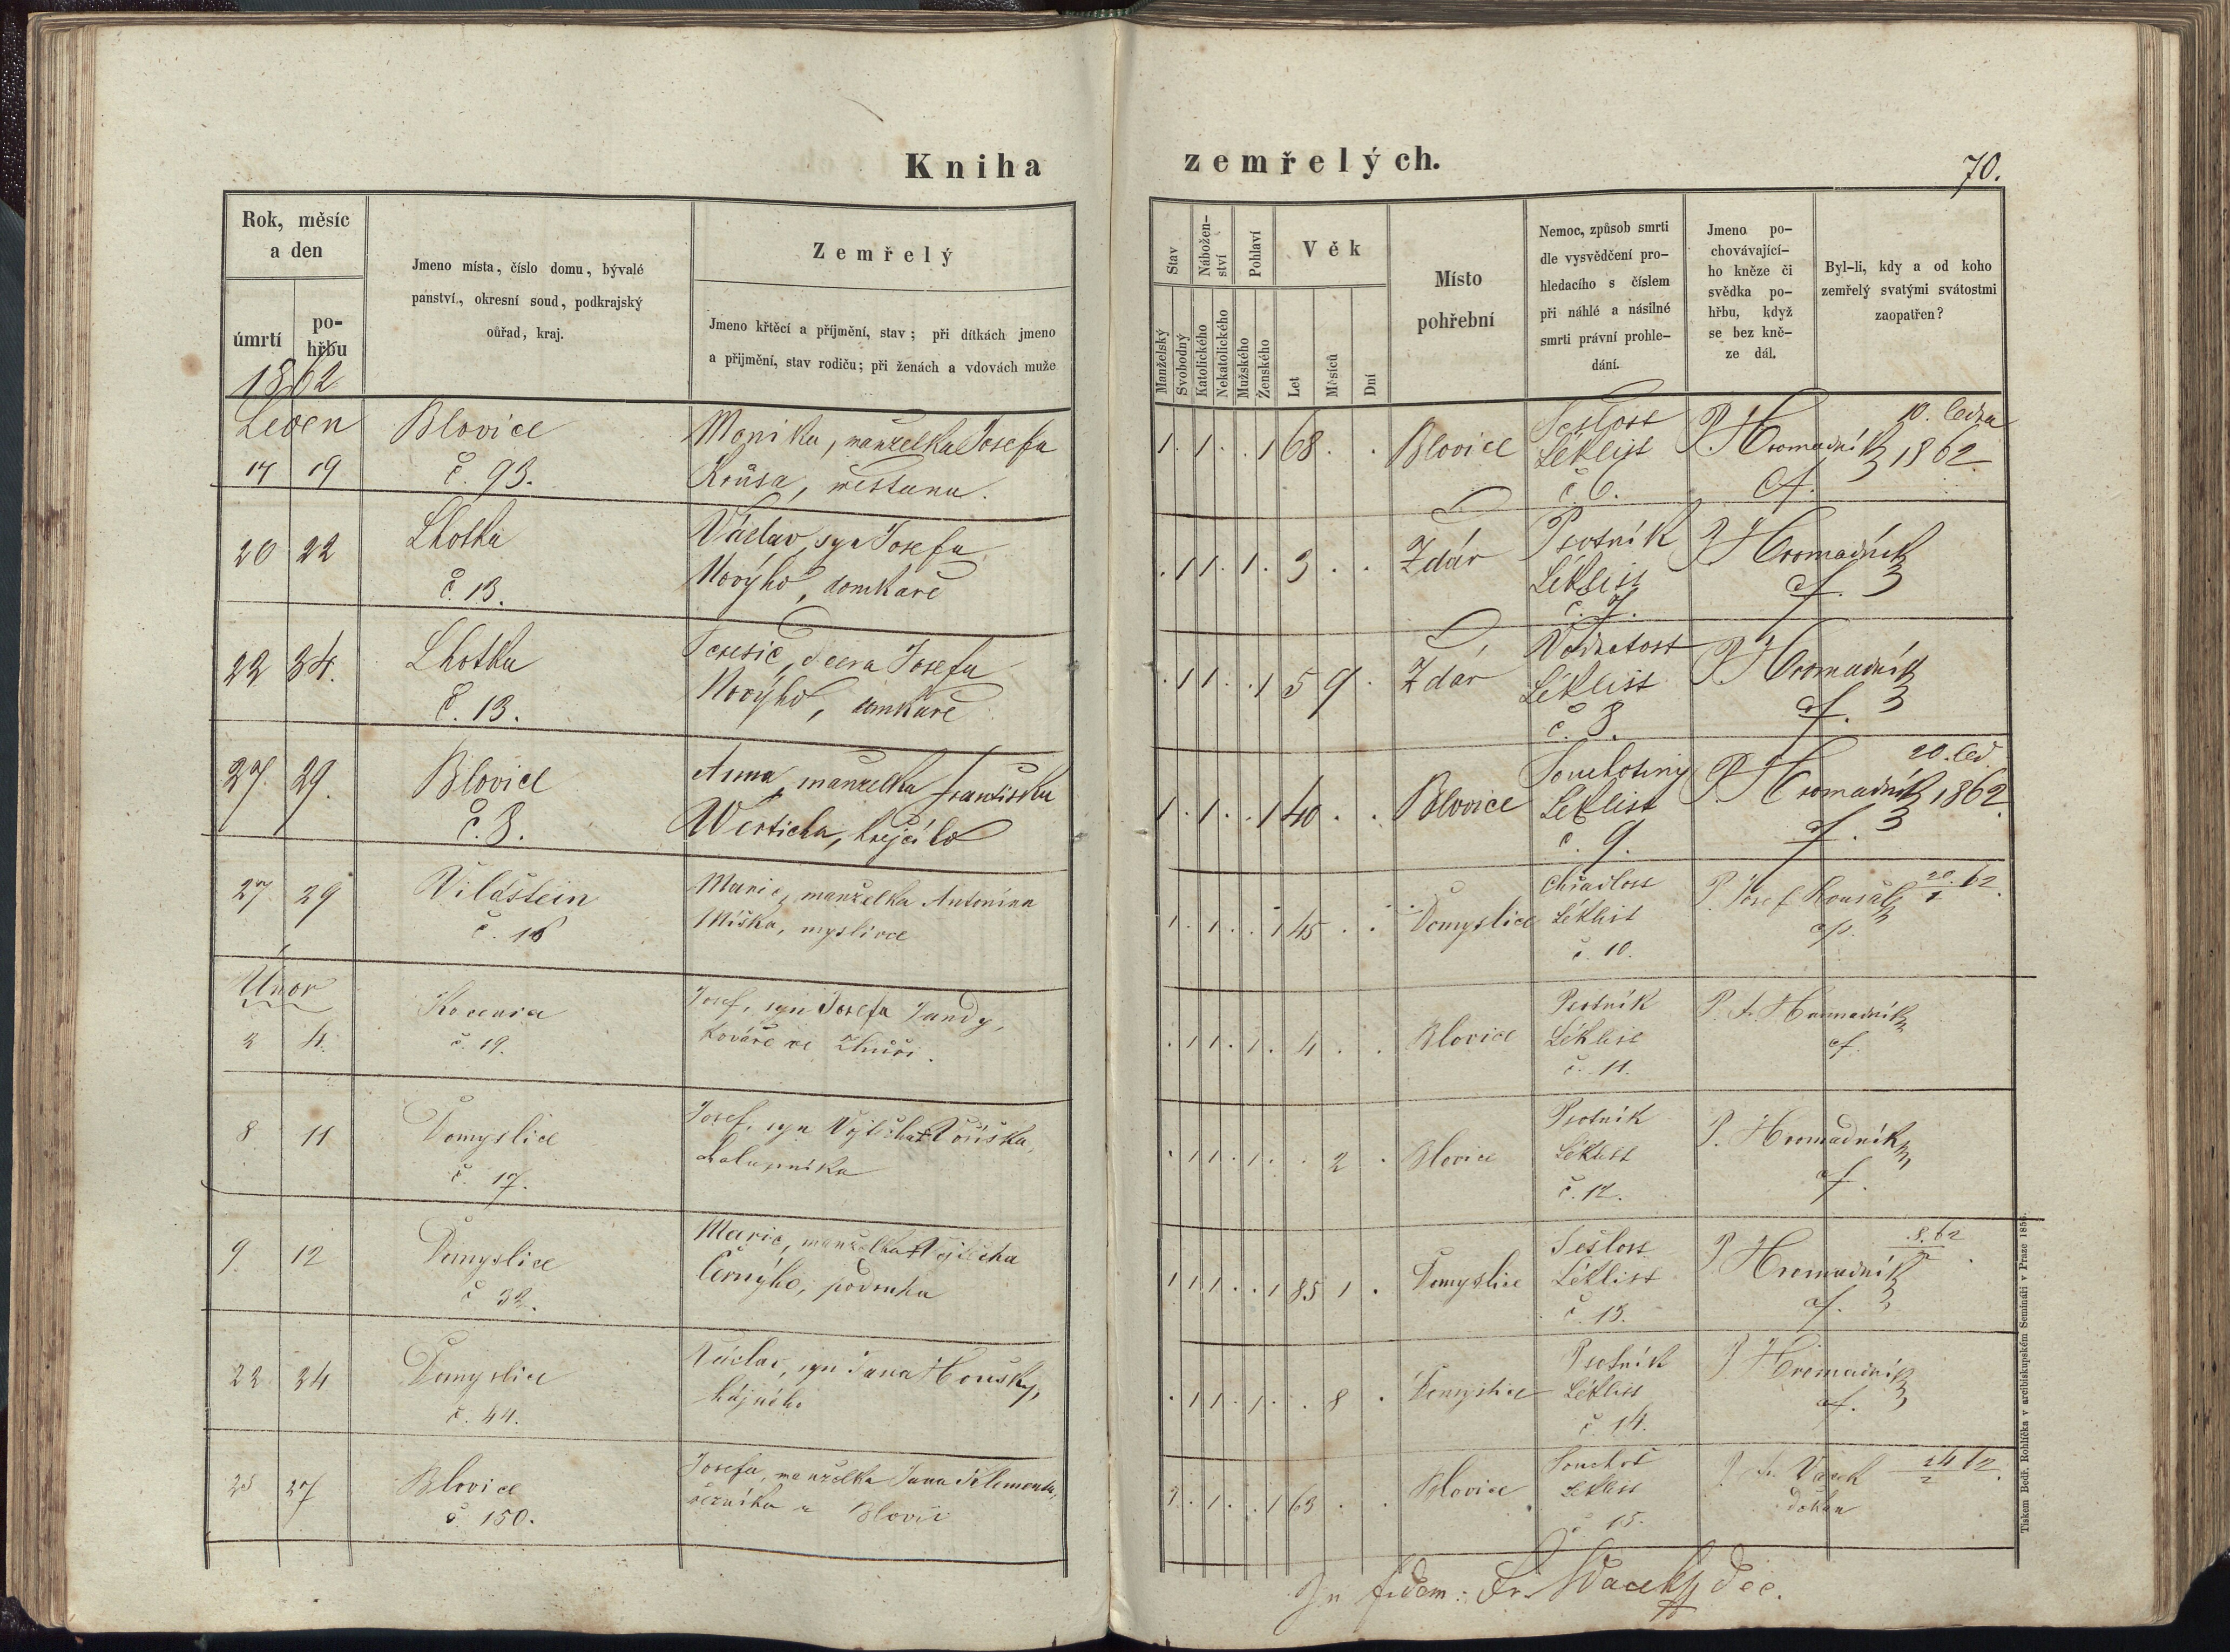 Kniha
zemřelých.
70.
Rok, měsíc
a den
úmrtí
po-
hřbu
1862
Jmeno místa, číslo domu, bývalé
panství, okresní soud, podkrajský
oůřad, kraj.
Zemřelý
Jmeno křtěcí a příjmění, stav; při dítkách jmeno
a přijmění, stav rodičů; při ženách a vdovách muže
Stav
Nábožen-
ství
Pohlaví
Věk
Manželský
Svobodný
Katolického
Nekatolického
Mužského
Ženského
Let
Měsíců
Dní
Místo
pohřební
Nemoc, způsob smrti
dle vysvědčení pro-
hledacího s číslem
při náhlé a násilné
smrti právní prohle-
dání.
Jmeno po-
chovávající-
ho kněze či
svědka po-
hřbu, když
se bez kně-
ze dál.
Byl-li, kdy a od koho
zemřelý svatými svátostmi
zaopatřen?
Leden
17 19
Blovice
č. 93.
Monika, manželka Josefa
Krůsa, měštana.
1 . 1 . . 1 68 . .
Blovice
Sešlost
Léklist
č 6.
P. Hromadník
cf.
10. ledna
1862
20 22
Lhotka
č. 13.
Václav, syn Josefa
Novýho, domkáře
. 1 1 . 1 . 3 . .
Zdár
Psotník
Léklist
č. 7.
P Hromadník
cf.
22 24.
Lhotka
č. 13.
Teresie, dcera Josefa
Novýho, domkáře
. 1 1 . . 1 5 9 .
Zdár
Vodnatost
Léklist
č. 8.
P. Hromadník
cf.
27. 29.
Blovice
č. 8.
Anna, manželka Františka
Werticha, krejčího
1 . 1 . . 1 40 . .
Blovice
Souchotiny
Léklist
č. 9.
P. Hromadník
cf.
20. led.
1862.
27. 29
Vildštein
č. 16
Marie, manželka Antonína
Míška, myslivce
1 . 1 . . 1 45 . .
Domyslice
Chřadlost
Léklist
č. 10.
P. Josef Kousal
cp.
20. 62.
1
Únor
2 4.
č. 19.
Josef, syn Josefa Jandy,
kováře ve
. 1 1 . 1 . 4 . .
Blovice
Psotník
Léklist
č. 11.
P. F. Hromadník
cf.
8 11
Domyslice
č. 17.
Josef, syn Vojtěcha
chalupníka
. 1 1 . 1 . . 2 .
Blovice
Psotník
Léklist
č. 12.
P. Hromadník
cf.
9. 12
Domyslice
č 32.
Marie, manželka Vojtěcha
Černýho, podruha
1 1 1 . . 1 85 1 .
Domyslice
Sešlost
Léklist
č. 13.
P Hromadník
cf.
8. 62
2
22 24
Domyslice
č. 44.
Václav, syn Jana Housky,
hájného
. 1 1 . 1 . . 8 .
Domyslice
Psotník
Léklist
č. 14.
P Hromadník
cf.
25 27
Blovice
č. 150.
Josefa, manželka Jana Klementa,
řezníka z Blovic
1 . 1 . . 1 63 . .
Blovice
Souchot
Léklist
č. 15.
P. Fr. Vacek
děkan
24 62.
2
In fidem: Fr. Wacek, dec.
Tiskem Bedř. Rohlíčka v arcibiskupském Semináři v Praze 185